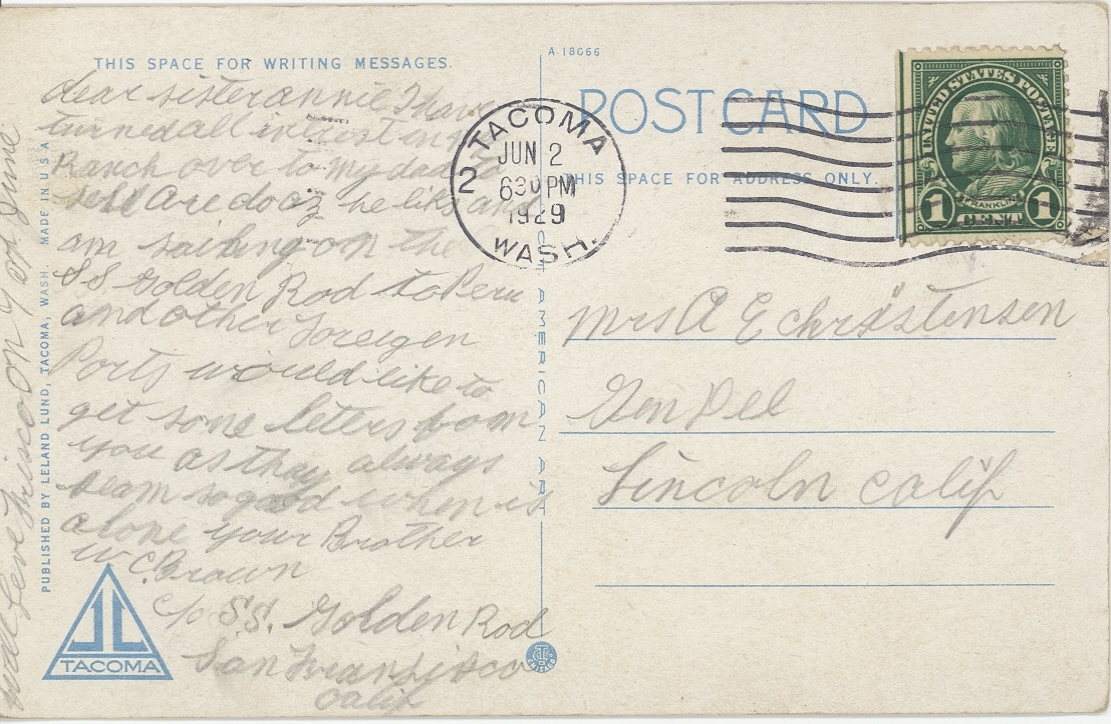 THIS SPACE FOR WRITING MESSAGES.
A-18066
POST CARD
THIS SPACE FOR ADDRESS ONLY.
UNITED STATES POSTAGE
FRANKLIN
1 CENT 1
TACOMA
JUN 2
630 PM
1929
WASH.
2
dear sister annie I have
turned all interest in
Ranch over to my dad to
sell Are do as he liks and
am sailing on the
SS Golden Rod to Peru
and other Foreigen
Ports would like to
get some letters from
you as they always
seam so good when is
alone your Brother
W C Brown
c/o SS. Golden Rod
San Fransisco
Calif
will Leve Frisco on 7 or June
Mrs A E christensen
Gen Del
Lincoln calif
PUBLISHED BY LELAND LUND, TACOMA, WASH. MADE IN U.S.A.
AMERICAN ART
TACOMA
CHICAGO